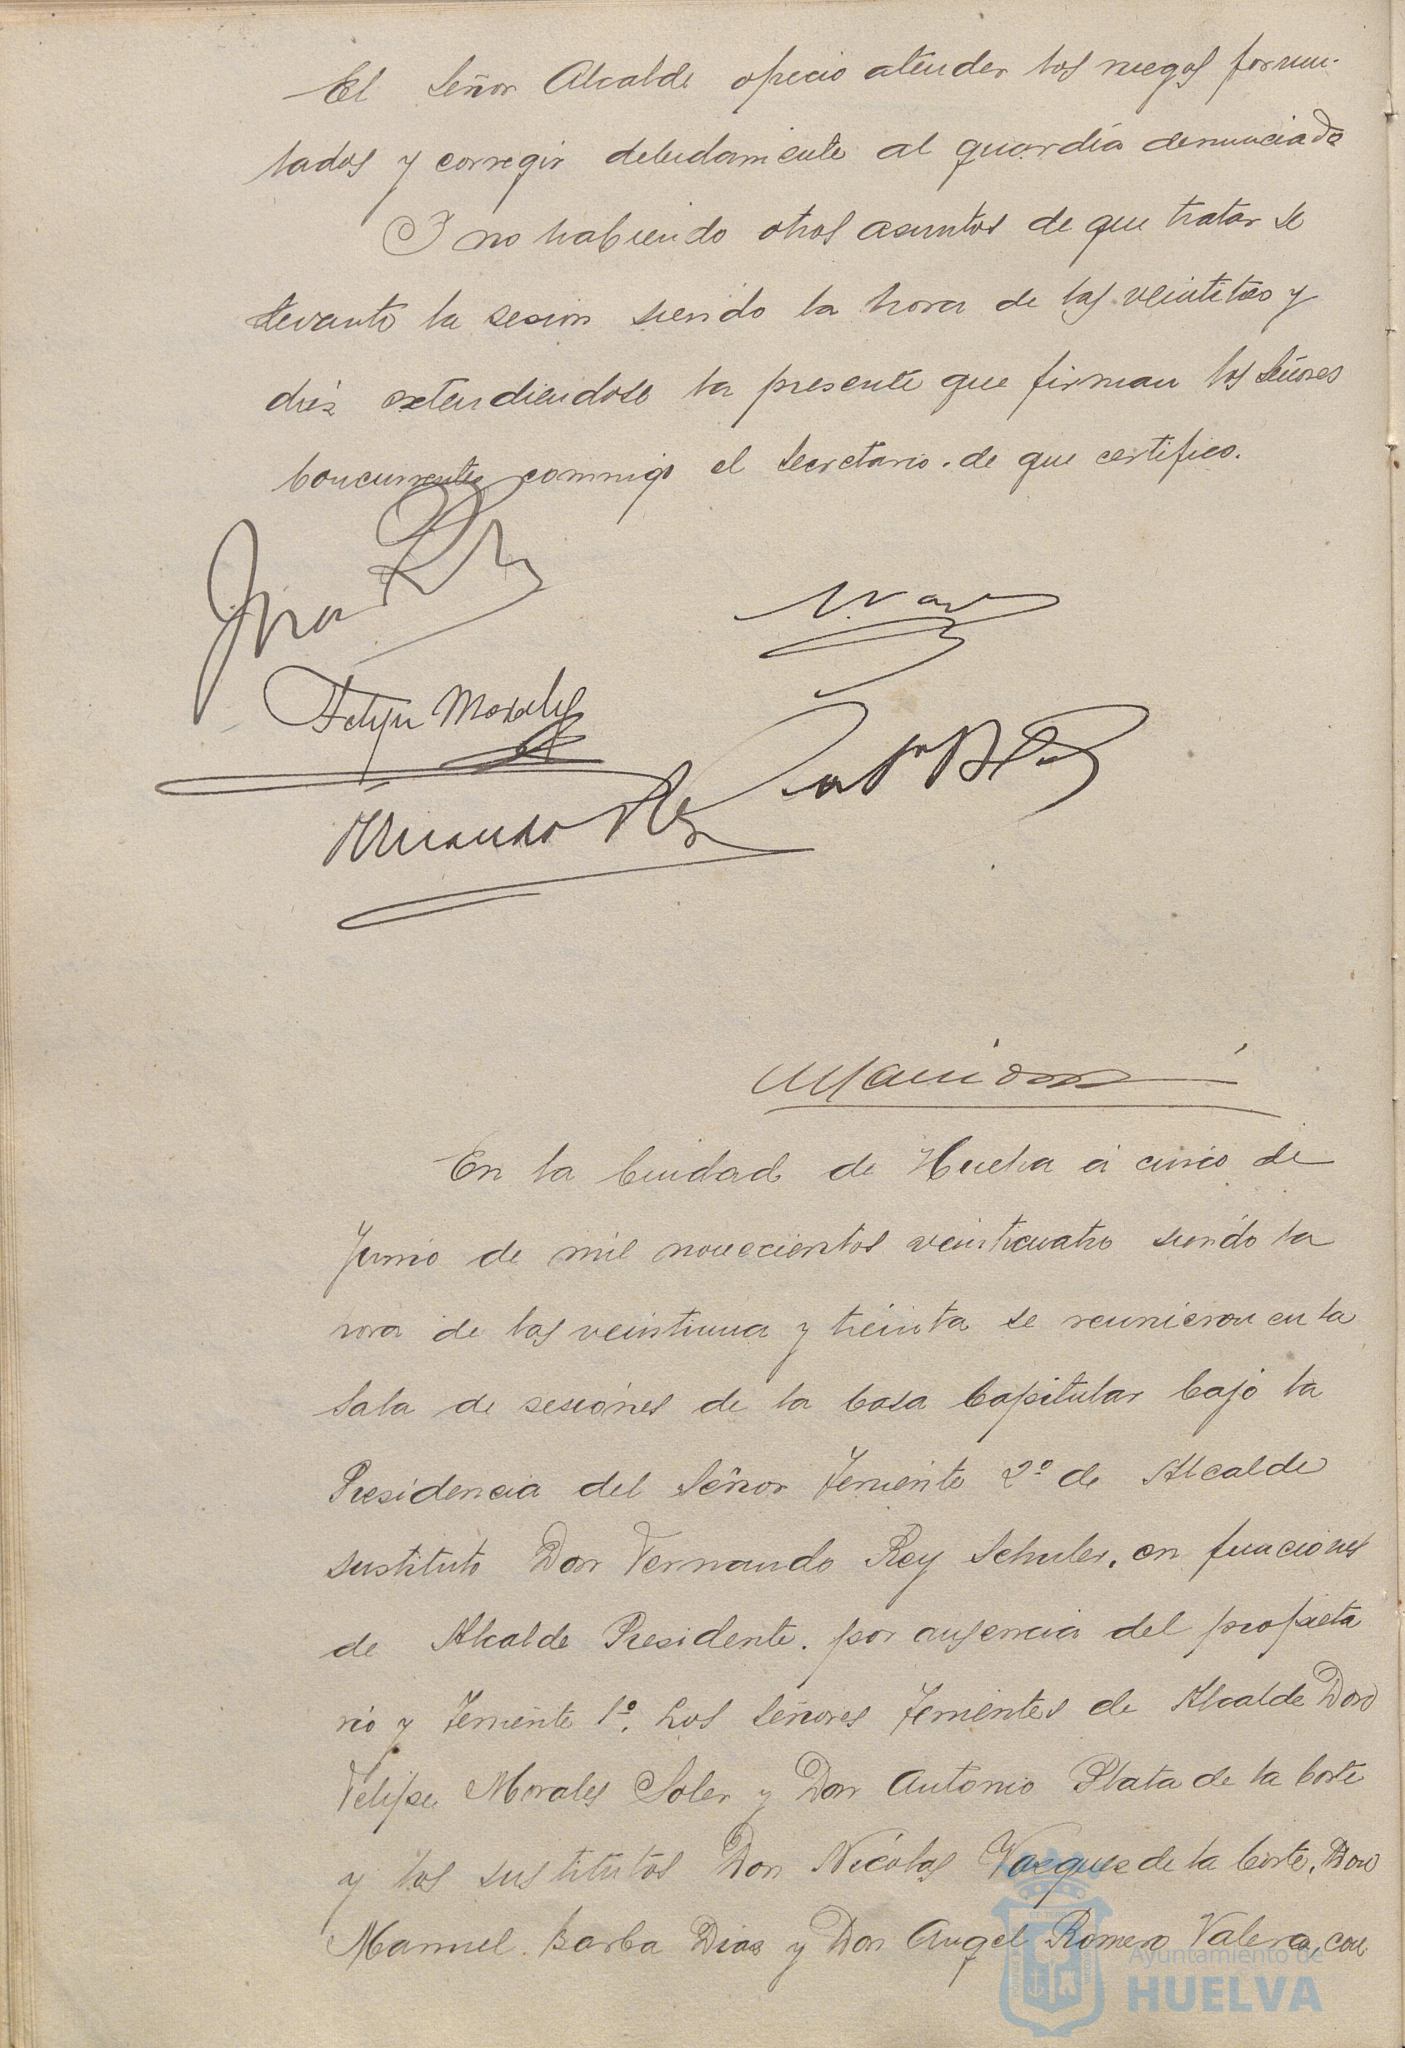 El Señor Alcalde ofrecio atender los ruegos formu-
lados y corregir debidamente al guardia denunciado
Y no habiendo otros asuntos de que tratar se
levantó la sesion siendo la hora de las veintitres y
diez extendiendose la presente que firman los Señores
Concurrentes commigo el Secretario. de que certifico.
Felipe Morales
Fernando Rey
En la Ciudad de Huelva á cinco de
Junio de mil novecientos veinticuatro siendo la
hora de las veintiuna y treinta se reunieron en la
Sala de sesiones de la Casa Capitular bajo la
Presidencia del Señor Teniente 2º de Alcalde
sustituto Don Fernando Rey Schuler, en funciones
de Alcalde Presidente. por ausencia del propieta
rio y Teniente 1º. Los Señores Tenientes de Alcalde Don
Felipe Morales Soler y Don Antonio Plata de la Corte
y los sustitutos Don Nicolas Vazquez de la Corte, Don
Manuel Barba Dias y Don Angel Romero Valera, con
Ayuntamiento de
HUELVA